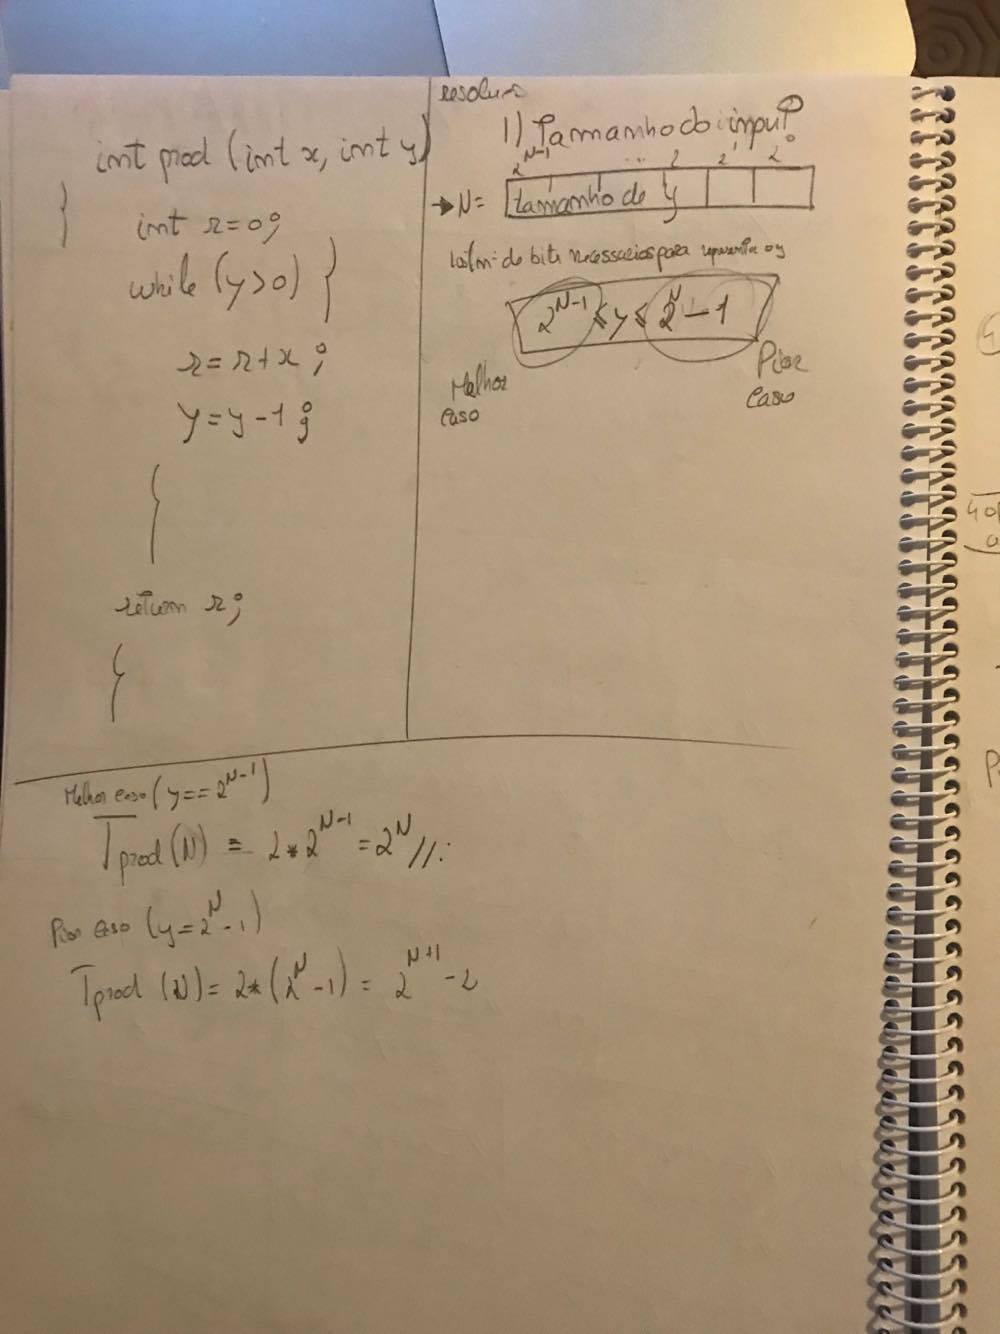 int prod (int x, int y)
}
int r=0;
while (y>0) }
r=r+x;
y=y-1;
{
return r;
{
resolução
1) Tamanho do input
2^N-1 ... 2 2^1 2^0
→ N= tamanho de y
de bits necessarios para y
2^N-1 ≤ y ≤ 2^N - 1
Melhor caso
Pior caso
Melhor caso (y==2^N-1)
Tprod(N) = 2*2^N-1 = 2^N //:
Pior caso (y=2^N-1)
Tprod (N) = 2*(2^N-1) = 2^N+1 -2